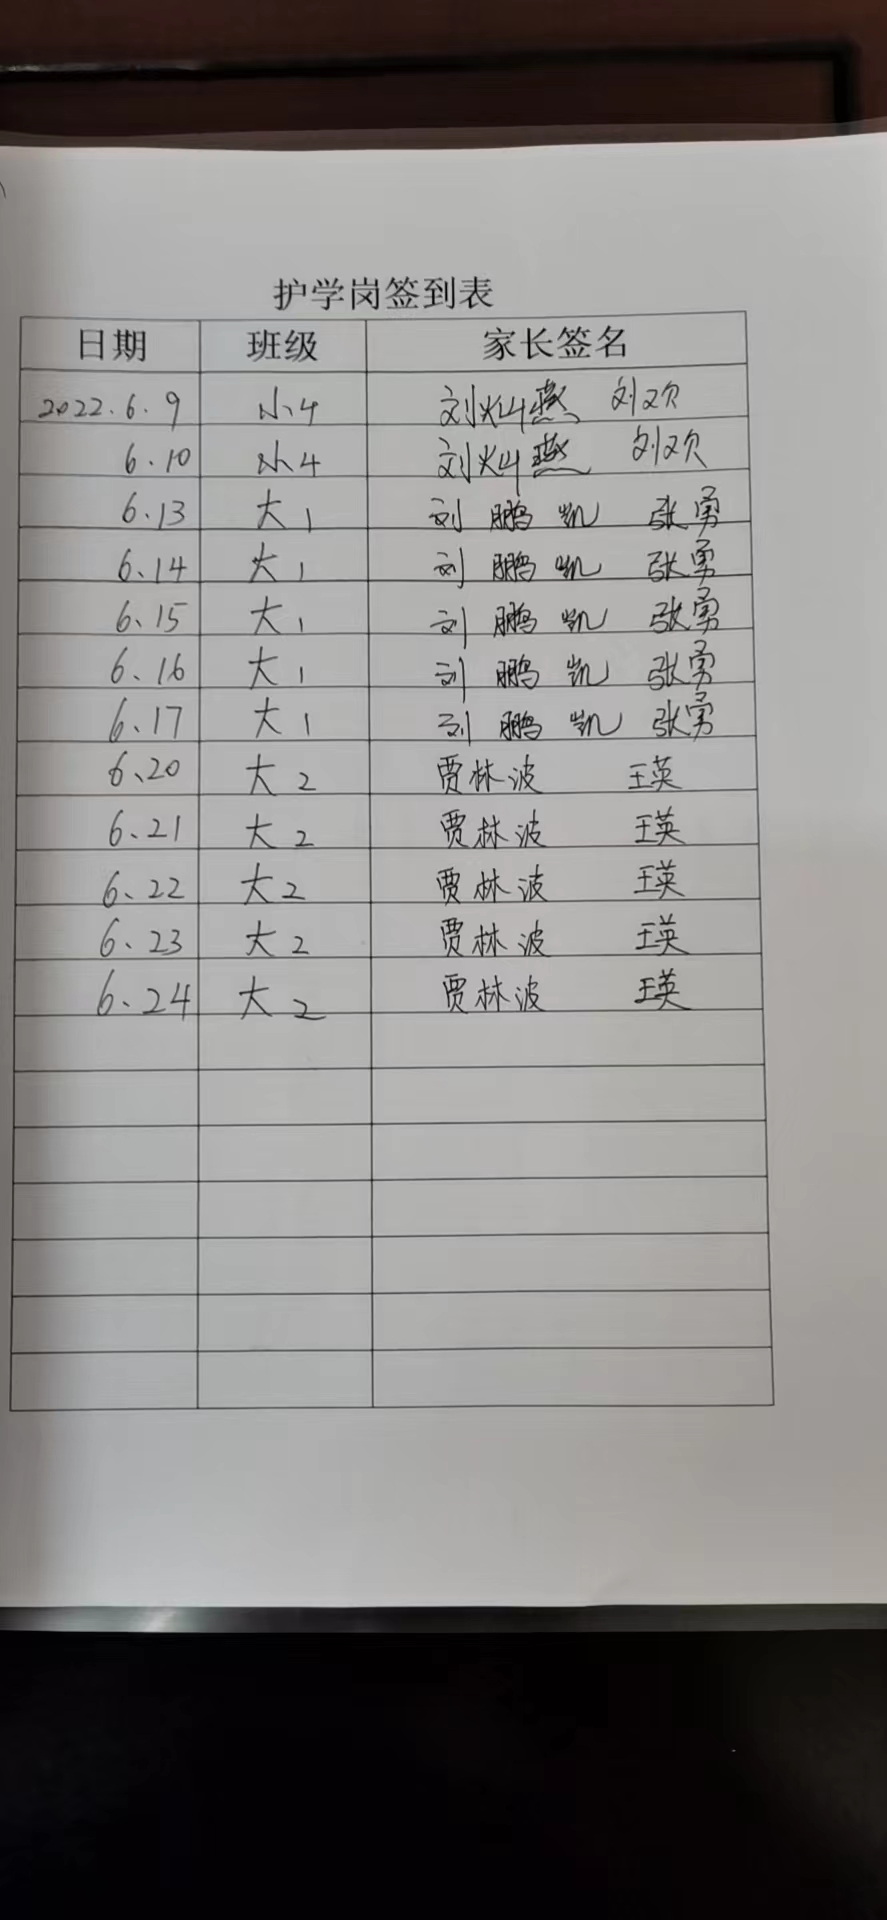 护学岗签到表
日期 班级 家长签名
2022.6.9 小4 刘灿燕 刘欢
6.10 小4 刘灿燕 刘欢
6.13 大1 刘鹏凯 张勇
6、14 大1 刘鹏凯 张勇
6、15 大1 刘鹏凯 张勇
6、16 大1 刘鹏凯 张勇
6、17 大1 刘鹏凯 张勇
6、20 大2 贾林波 王英
6、21 大2 贾林波 王英
6、22 大2 贾林波 王英
6、23 大2 贾林波 王英
6、24 大2 贾林波 王英